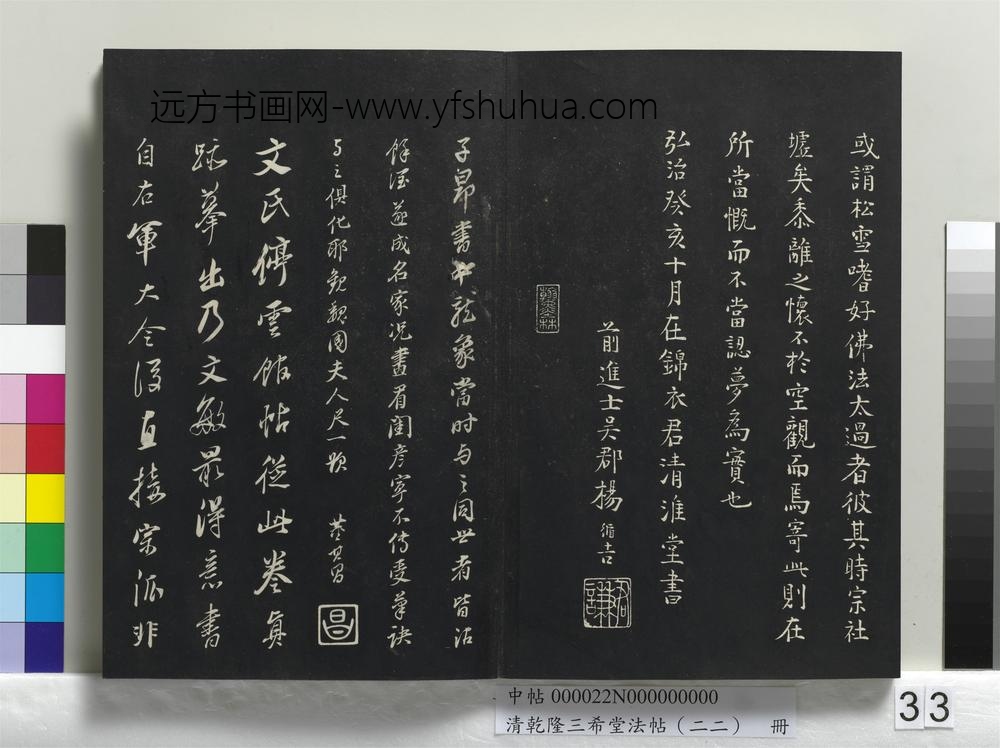 远方书画网-www.yfshuhua.com
或謂松雪嗜好佛法太過者彼其時宗社
墟矣黍離之懷不於空觀而焉寄此則在
所當慨而不當認夢為實也
弘治癸亥十月在錦衣君清淮堂書
前進士吴郡楊循吉
子昂書中龍象當时与之同世者皆沾
餘瀝遂成名家況畫眉閨彦寧不传受筆訣
与之俱化耶観魏國夫人尺一題
董其昌
昌
文氏停雲館帖從此卷真
跡摹出乃文敏最得意書
自右軍大令後直接宗派非
中帖 000022N000000000
清乾隆三希堂法帖（二二） 冊
33